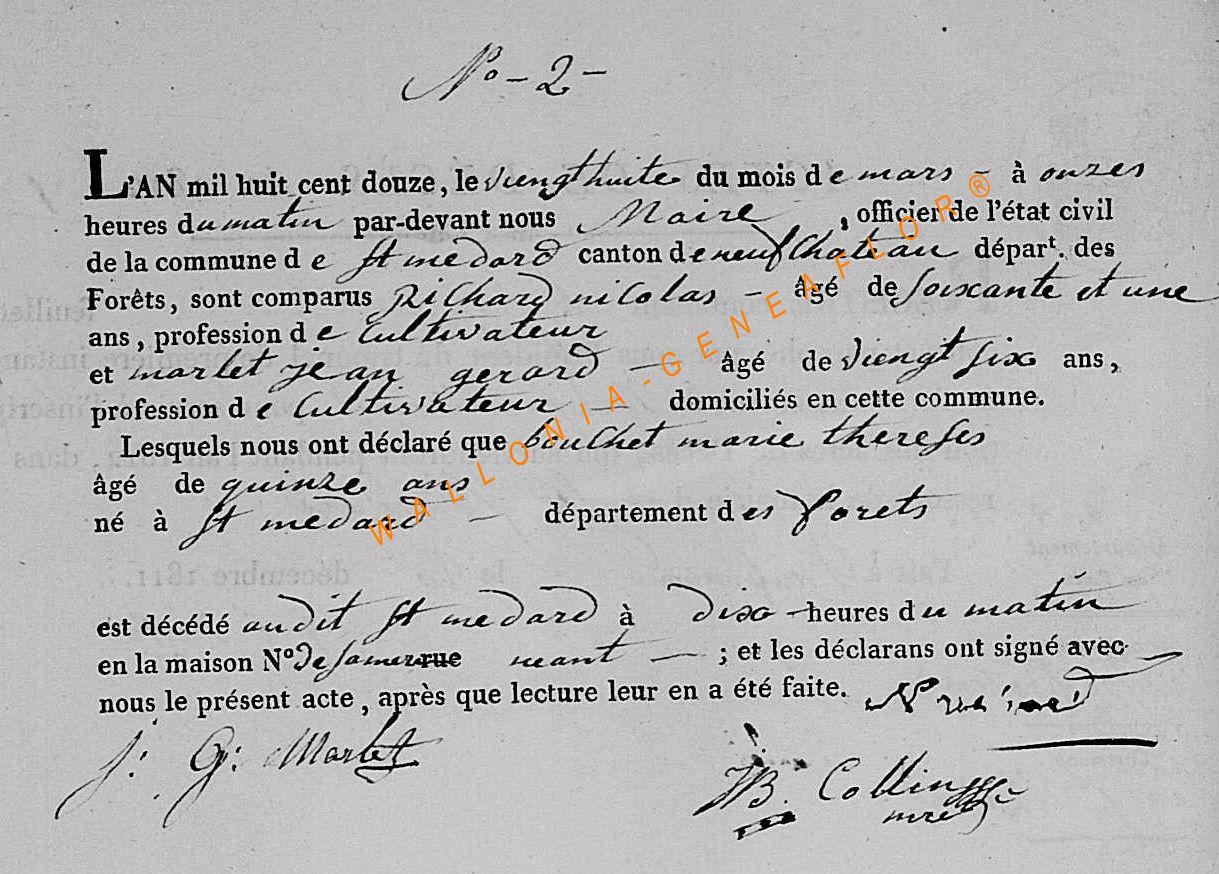 No - 2 -
L'AN mil huit cent douze, le viengthuite du mois de mars - à onzes
heures dumatin par-devant nous Maire, officier de l'état civil
de la commune de st medard canton de neufchateau départ. des
Forêts, sont comparus Richard nicolas - âgé de soixante et une
ans, profession de Cultivateur
et marlet jean gerard - âgé de viengt six ans,
profession de Cultivateur - domiciliés en cette commune.
Lesquels nous ont déclaré que bouchet marie thereses
âgé de quinze ans
né à st medard - département des forets
est décédé audit st medard à dix heures du matin
en la maison No de samer rue neant - ; et les déclarans ont signé avec
nous le présent acte, après que lecture leur en a été faite.
J: G: Marlet
JB. Collin
WALLONIA-GENEAFLOR®